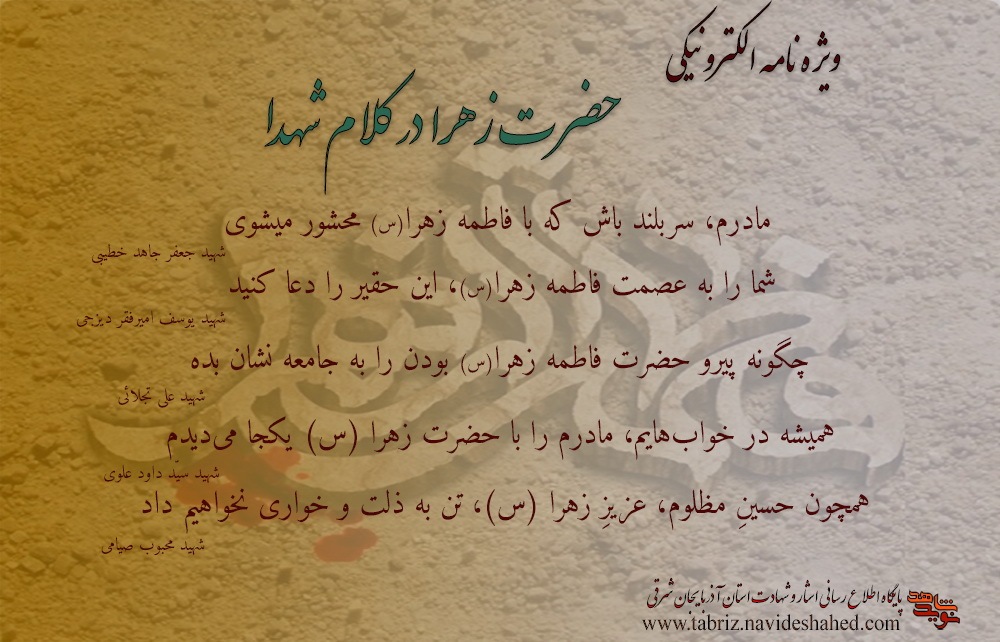 ویژه نامه الکترونیکی
حضرت زهرا در کلام شهدا
مادرم، سربلند باش که با فاطمه زهرا(س) محشور میشوی
شهید جعفر جاهد خطیبی
شما را به عصمت فاطمه زهرا(س)، این حقیر را دعا کنید
شهید یوسف امیرفقر دیزجی
چگونه پیرو حضرت فاطمه زهرا(س) بودن را به جامعه نشان بده
شهید علی تجلائی
همیشه در خواب‌هایم، مادرم را با حضرت زهرا (س) یکجا می‌دیدم
شهید سیّد داود علوی
همچون حسینِ مظلوم، عزیزِ زهرا (س)، تن به ذلت و خواری نخواهیم داد
شهید محبوب صیامی
پایگاه اطلاع رسانی ایثار و شهادت استان آذربایجان شرقی
نوید شاهد
www.tabriz.navideshahed.com